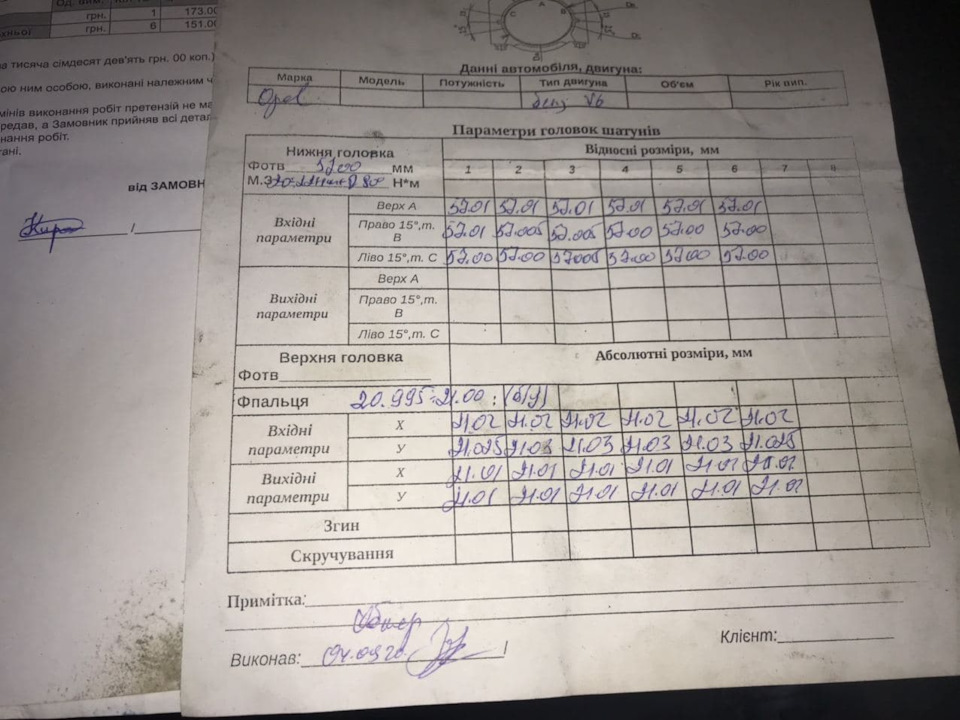 Од. вим.
грн.
173.00
хньої
грн.
6
151.00
на тисяча сімдесят дев'ять грн. 00 коп.)
ою ним особою, виконані належним ч
мінів виконання робіт претензій не ма
редав, а Замовник прийняв всі детал
нання робіт.
гані.
від ЗАМОВН
А
С
В
Данні автомобіля, двигуна:
Марка Модель Потужність Тип двигуна Об'єм Рік вип.
Opel бенз V6
Параметри головок шатунів
Нижня головка Відносні розміри, мм
Фотв 57.00 мм 1 2 3 4 5 6 7 8
М.З Н*м
Вхідні параметри
Верх А 57.01 57.01 57.01 57.01 57.01 57.01
Право 15°,т. В 57.01 57.005 57.005 57.00 57.00 57.00
Ліво 15°,т. С 57.00 57.00 57.005 57.00 57.00 57.00
Вихідні параметри
Верх А
Право 15°,т. В
Ліво 15°,т. С
Верхня головка Абсолютні розміри, мм
Фотв
Фпальця 20.995-21.00 ; (б/у)
Вхідні параметри
Х 21.02 21.02 21.02 21.02 21.02 21.02
У 21.025 21.03 21.03 21.03 21.03 21.025
Вихідні параметри
Х 21.01 21.01 21.01 21.01 21.01 21.01
У 21.01 21.01 21.01 21.01 21.01 21.01
Згин
Скручування
Примітка:
Виконав: 04.09.20. /
Клієнт: